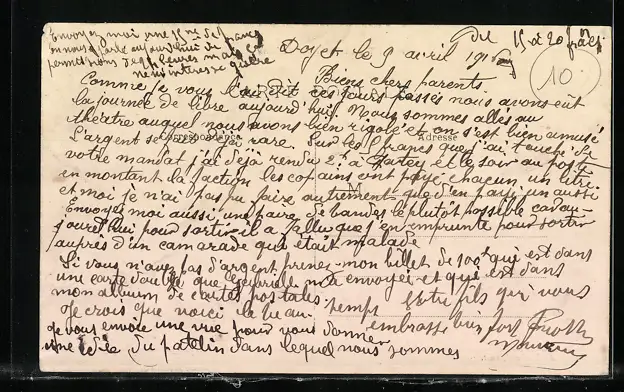 Envoyez moi une 15ne de francs
on nous parle aujourd'hui de
permissions de 24 heures mais ça
ne m'intéresse guère
de 15 à 20 francs
10
Doyet le 9 avril 191
Biens chers parents.
Comme je vous l'ai dit ces jours passés nous avons eût
la journée de libre aujourd'hui. Nous sommes allés au
théatre auquel nous avons bien rigolé et on s'est bien amusé
Correspondance
Adresse
L'argent se fait rare. Sur les francs que j'ai touché de
votre mandat j'ai déjà rendu 2f à et le soir au poste
en montant la faction les copains ont payé chacun un litre
et moi je n'ai pas pu faire autrement que d'en payé un aussi
Envoyez moi aussi une paire de bandes le plutôt possible car
jourd'hui pour sortir il a fallu que j'en emprunte pour sortir
auprès d'un camarade qui était malade
Si vous n'avez pas d'argent prenez mon billet de 100f qui est dans
une carte double que m'a envoyée et qui est dans
mon album de cartes postales.
Je crois que voici le beau temps
Votre fils qui vous
embrasse bien fort
je vous envoie une vue pour vous donner
une idée du patelin dans lequel nous sommes